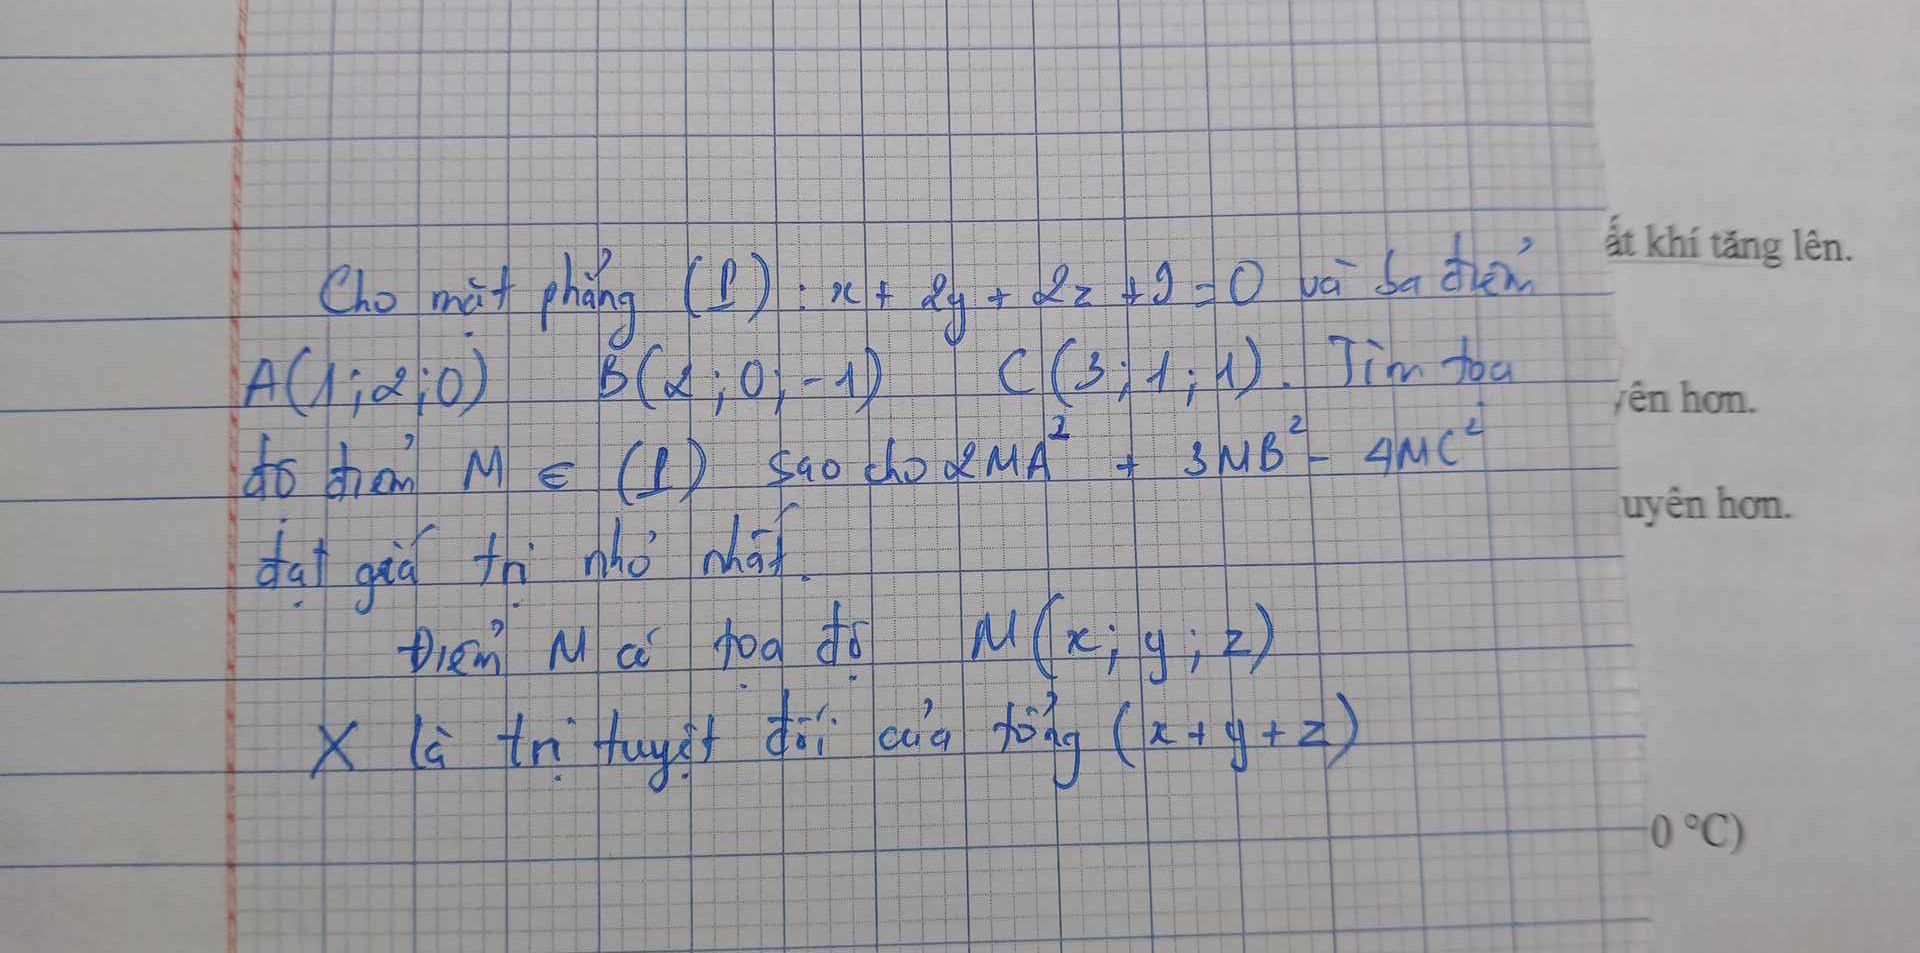 ất khí tăng lên.
Cho mặt phẳng (P) : x + 2y + 2z + 9 = 0 và ba điểm
A(1;2;0) B(2;0;-1) C(3;1;1). Tìm tọa
yên hơn.
độ điểm M ∈ (P) sao cho 2MA² + 3MB² - 4MC²
uyên hơn.
đạt giá trị nhỏ nhất.
Điểm M có tọa độ M(x;y;z)
X là trị tuyệt đối của tổng (x+y+z)
0 °C)